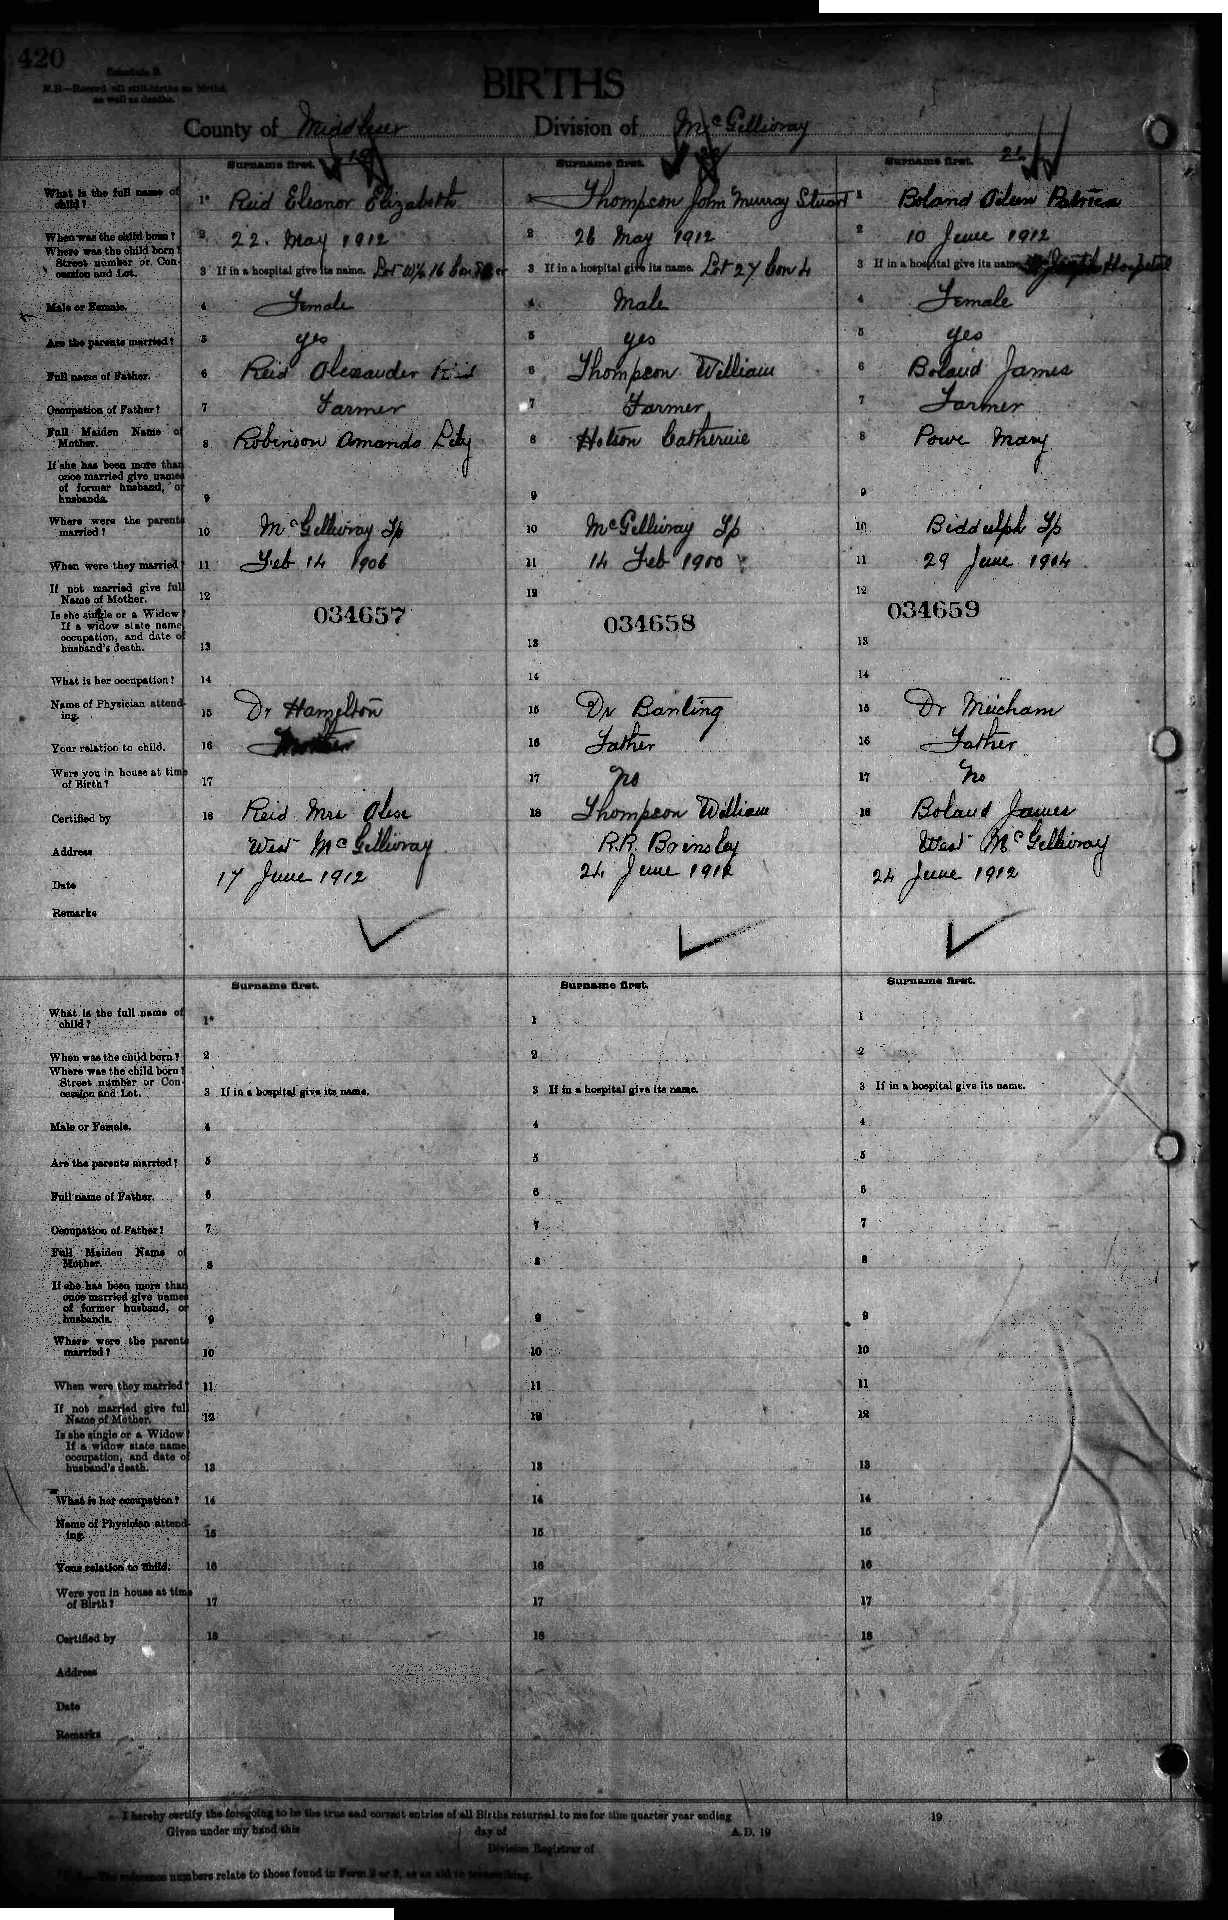 420
Schedule B.
N.B—Record all still-births as births,
as well as deaths.
BIRTHS
County of Middlesex Division of McGillivray
Surname first. 19 Surname first. 20 Surname first. 21
What is the full name of child? 1* Reid Eleanor Elizabeth 1 Thompson John Murray Stuart 1 Boland Aileen Patricia
When was the child born? 2 22. May 1912 2 26 May 1912 2 10 June 1912
Where was the child born? Street number or Concession and Lot. 3 If in a hospital give its name. Lot W½ 16 Con 3 If in a hospital give its name. Lot 27 Con 4 3 If in a hospital give its name Joseph Hospital
Male or Female. 4 Female 4 Male 4 Female
Are the parents married? 5 yes 5 yes 5 yes
Full name of Father. 6 Reid Alexander 6 Thompson William 6 Boland James
Occupation of Father? 7 Farmer 7 Farmer 7 Farmer
Full Maiden Name of Mother. 8 Robinson Amanda Lily 8 Hotson Catherine 8 Powe Mary
If she has been more than once married give names of former husband, or husbands. 9 9 9
Where were the parents married? 10 McGillivray Tp 10 McGillivray Tp 10 Biddulph Tp
When were they married? 11 Feb 14 1906 11 14 Feb 1900 11 29 June 1904
If not married give full Name of Mother. 12 12 12
034657 034658 034659
Is she single or a Widow? If a widow state name, occupation, and date of husband's death. 13 13 13
What is her occupation? 14 14 14
Name of Physician attending. 15 Dr Hamilton 15 Dr Banting 15 Dr Meicham
Your relation to child. 16 Mother 16 Father 16 Father
Were you in house at time of Birth? 17 17 No 17 No
Certified by 18 Reid Mrs Alex 18 Thompson William 18 Boland James
Address West McGillivray R.R. Brinsley West McGillivray
Date 17 June 1912 24 June 1912 24 June 1912
Remarks
Surname first. Surname first. Surname first.
What is the full name of child? 1* 1 1
When was the child born? 2 2 2
Where was the child born? Street number or Concession and Lot. 3 If in a hospital give its name. 3 If in a hospital give its name. 3 If in a hospital give its name.
Male or Female. 4 4 4
Are the parents married? 5 5 5
Full name of Father. 6 6 6
Occupation of Father? 7 7 7
Full Maiden Name of Mother. 8 8 8
If she has been more than once married give names of former husband, or husbands. 9 9 9
Where were the parents married? 10 10 10
When were they married? 11 11 11
If not married give full Name of Mother. 12 12 12
Is she single or a Widow? If a widow state name, occupation, and date of husband's death. 13 13 13
What is her occupation? 14 14 14
Name of Physician attending. 15 15 15
Your relation to child. 16 16 16
Were you in house at time of Birth? 17 17 17
Certified by 18 18 18
Address
Date
Remarks
I hereby certify the foregoing to be the true and correct entries of all Births returned to me for the quarter year ending 19
Given under my hand this day of A.D. 19
Division Registrar of
The reference numbers relate to those found in Form 2 or 3, as an aid to transcribing.